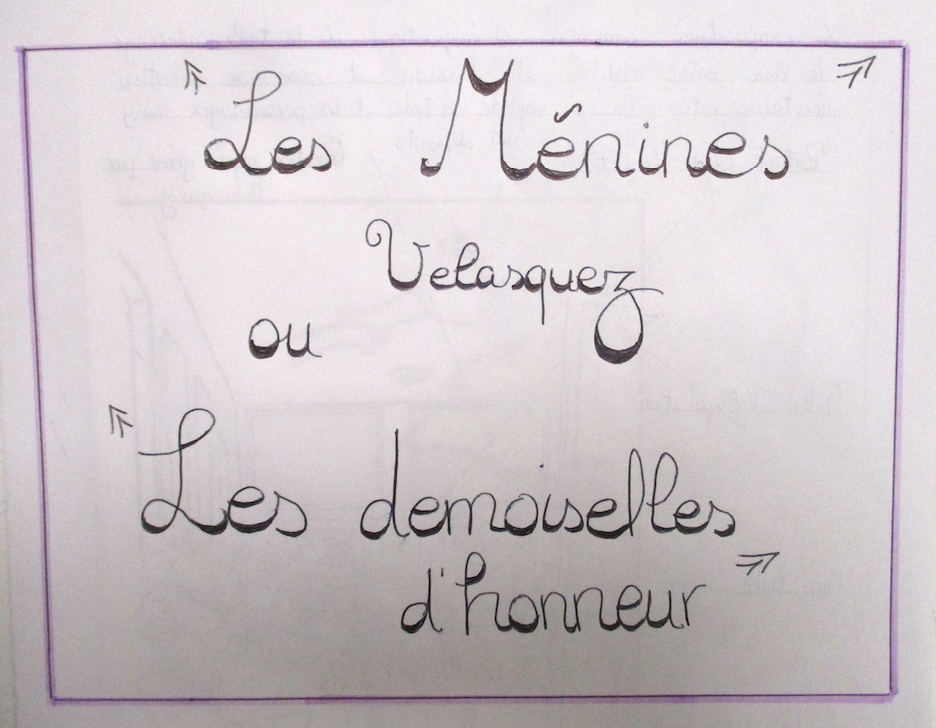 "Les Ménines"
Velasquez
ou
"Les demoiselles
d'honneur"